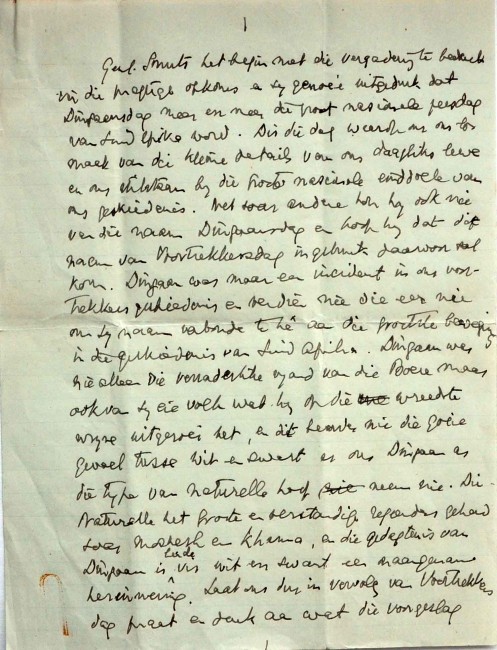 1
Genl. Smuts het begin met die vergadering te bedank
vir die pragtige opkoms en sy genoeë uitgedruk dat
Dingaansdag meer en meer die groot nasionale feesdag
van Suid Afrika word. Dis die dag waarop ons ons los
maak van die kleine details van ons daaglikse lewe
en ons stilstaan by die groote nasionale einddoele van
ons geskiedenis. Net soos andere hou hy ook nie
van die naam Dingaansdag en hoop hy dat die
naam van Voortrekkersdag in gebruik daarvoor sal
kom. Dingaan was maar een incident in ons voor-
trekkers geskiedenis en verdien nie die eer nie
om sy naam verbonde te hê aan die grootste beweging
in die geskiedenis van Suid Afrika. Dingaan was
nie alleen die verraderlike vyand van die Boere maar
ook van sy eie volk wat hy op die wreedste
wyse uitgeroei het, en dit bevorder nie die goeie
gevoel tusse wit en swart as ons Dingaan as
die type van naturelle hoof neem nie. Die
Naturelle het groote en verstandige regeerders gehad
soos Moshesh en Khama, en die gedagtenis van
Dingaan is vir beide wit en swart een onaangename
herinnering. Laat ons dus in vervolg van Voortrekkers
dag praat en denk aan wat die voorgeslag